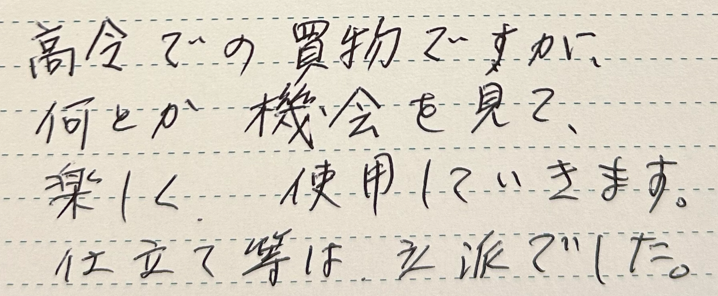 高令での買物ですが、
何とか機会を見て、
楽しく、使用していきます。
仕立て等は、立派でした。